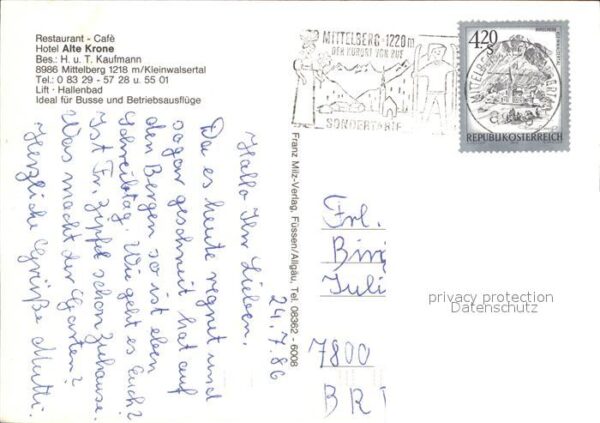 Restaurant - Café
Hotel Alte Krone
Bes.: H. u. T. Kaufmann
8986 Mittelberg 1218 m/Kleinwalsertal
Tel.: 0 83 29 - 57 28 u. 55 01
Lift · Hallenbad
Ideal für Busse und Betriebsausflüge
MITTELBERG · 1220 m
DER KURORT VON RUF
SONDERTARIF
4,20
S
REPUBLIK ÖSTERREICH
24.7.86
Hallo Ihr Lieben,
Da es heute regnet und
sogar geschneit hat auf
den Bergen so ist eben
Schreibtag. Wie geht es Euch?
Ist Fr. Zipfel schon Zuhause.
Was macht der Garten?
Herzliche Grüße Mutti
Franz Milz-Verlag, Füssen/Allgäu, Tel. 08362 - 6008
Frl.
Juli
7800
BRT
privacy protection
Datenschutz